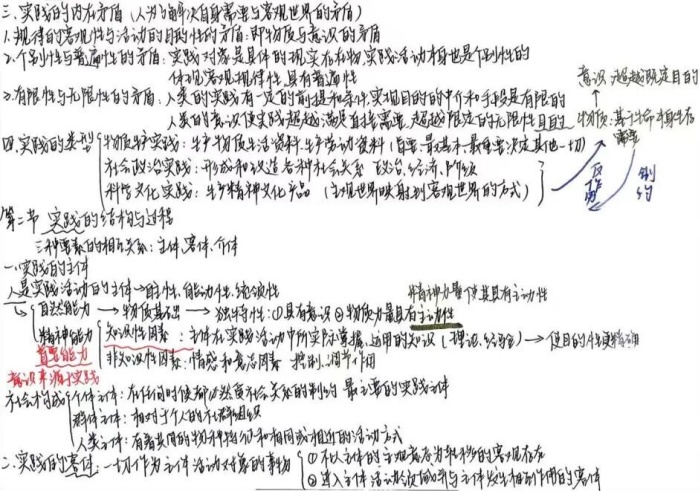 三.实践的内在矛盾(人为了解决自身需要与客观世界的矛盾)
1.规律的客观性与活动的目的性的矛盾:即物质与意识的矛盾
2.个别性与普遍性的矛盾:实践对象是具体的现实存在物,实践活动本身也是个别性的
体现客观规律性,具有普遍性
3.有限性与无限性的矛盾:人类的实践有一定的前提和条件,实现目的的中介和手段是有限的
人类的意识使实践超越满足直接需要,超越限定的无限性目的
意识:超越既定目的
物质:基于生命本身生存需要
反作用
制约
四.实践的类型
物质生产实践:生产物质生活资料、生产劳动资料(首要、最基本、最重要、决定其他一切)
社会政治实践:形成和改造各种社会关系 政治、经济、阶级
科学文化实践:生产精神文化产品(主观世界映射到客观世界的方式)
第二节 实践的结构与过程
三种要素的相互关系:主体、客体、介体
一.实践的主体
人是实践活动的主体→自主性、能动性、
精神力量使其具有主动性
自然能力→物质基础→独特性:①具有意识②物质力最具有主动性
精神能力
首要能力
意识来源于实践
知识性因素:主体在实践活动中所实际掌握、运用的知识(理论、经验)→使目的性更精确
非知识性因素:情感和意志因素 控制、调节作用
社会构成
个体主体:在任何时候都必然负社会关系的制约 最主要的实践主体
群体主体:相对于个人的社群组织
人类主体:有着共同的物种特征和相同或相近的活动方式
二.实践的客体:一切作为主体活动对象的事物
①不以主体的主观意志为转移的客观存在
②进入主体活动领域并与主体发生相互作用的客体